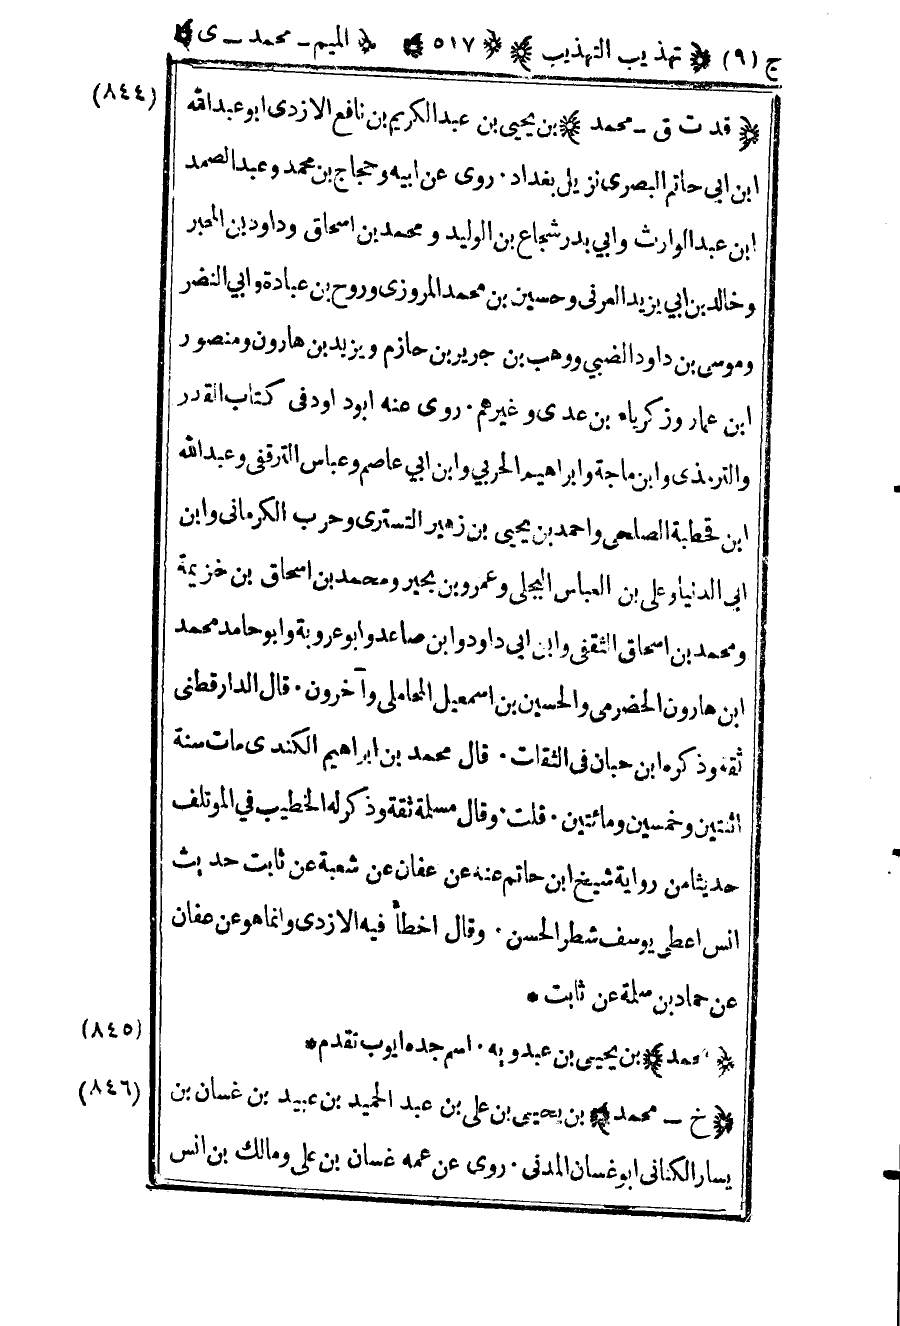 ج (٩) ﴿ تهذيب التهذيب ﴾ ﴿ ٥١٧ ﴾ ﴿ الميم - محمد - ى ﴾
(٨٤٤)
﴿ قد ت ق - محمد ﴾ بن يحيى بن عبد الكريم بن نافع الازدى ابو عبد الله
ابن ابي حاتم البصرى نزيل بغداد · روى عن ابيه وحجاج بن محمد وعبد الصمد
ابن عبد الوارث وابي بدر شجاع بن الوليد و محمد بن اسحاق وداود بن المحبر
وخالد بن ابي يزيد العرفى وحسين بن محمد المروزى وروح بن عبادة وابي النضر
وموسى بن داود الضبي ووهب بن جرير بن حازم ويزيد بن هارون ومنصور
ابن عمار وزكرياء بن عدى وغيرهم · روى عنه ابوداود فى كتاب القدر
والترمذى وابن ماجة وابراهيم الحربي وابن ابي عاصم وعباس الترقفى وعبدالله
ابن قحطبة الصلحى واحمد بن يحيى بن زهير التسترى وحرب الكرمانى وابن
ابي الدنيا وعلى بن العباس البجلى وعمرو بن بجير ومحمد بن اسحاق بن خزيمة
ومحمد بن اسحاق الثقفى وابن ابى داود وابن صاعد وابو عروبة وابو حامد محمد
ابن هارون الحضرمى والحسين بن اسمعيل المحاملى وآخرون · قال الدارقطنى
ثقة وذكره ابن حبان فى الثقات · قال محمد بن ابراهيم الكندى مات سنة
اثنتين وخمسين ومائتين · قلت · وقال مسلمة ثقة وذكر له الخطيب في الموتلف
حديثا من رواية شيخ ابن حاتم عنه عن عفان عن شعبة عن ثابت حديث
انس اعطى يوسف شطر الحسن · وقال اخطأ فيه الازدى وانما هو عن عفان
عن حماد بن سلمة عن ثابت *
(٨٤٥)
﴿ محمد ﴾ بن يحيى بن عبدويه · اسم جده ايوب تقدم *
(٨٤٦)
﴿ خ - محمد ﴾ بن يحيى بن على بن عبد الحميد بن عبيد بن غسان بن
يسار الكنانى ابو غسان المدنى · روى عن عمه غسان بن على ومالك بن انس